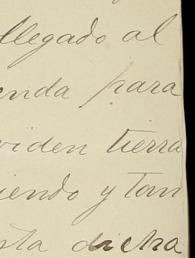 llegado al
enda para
viden tierra
iendo y tom
sta dicha